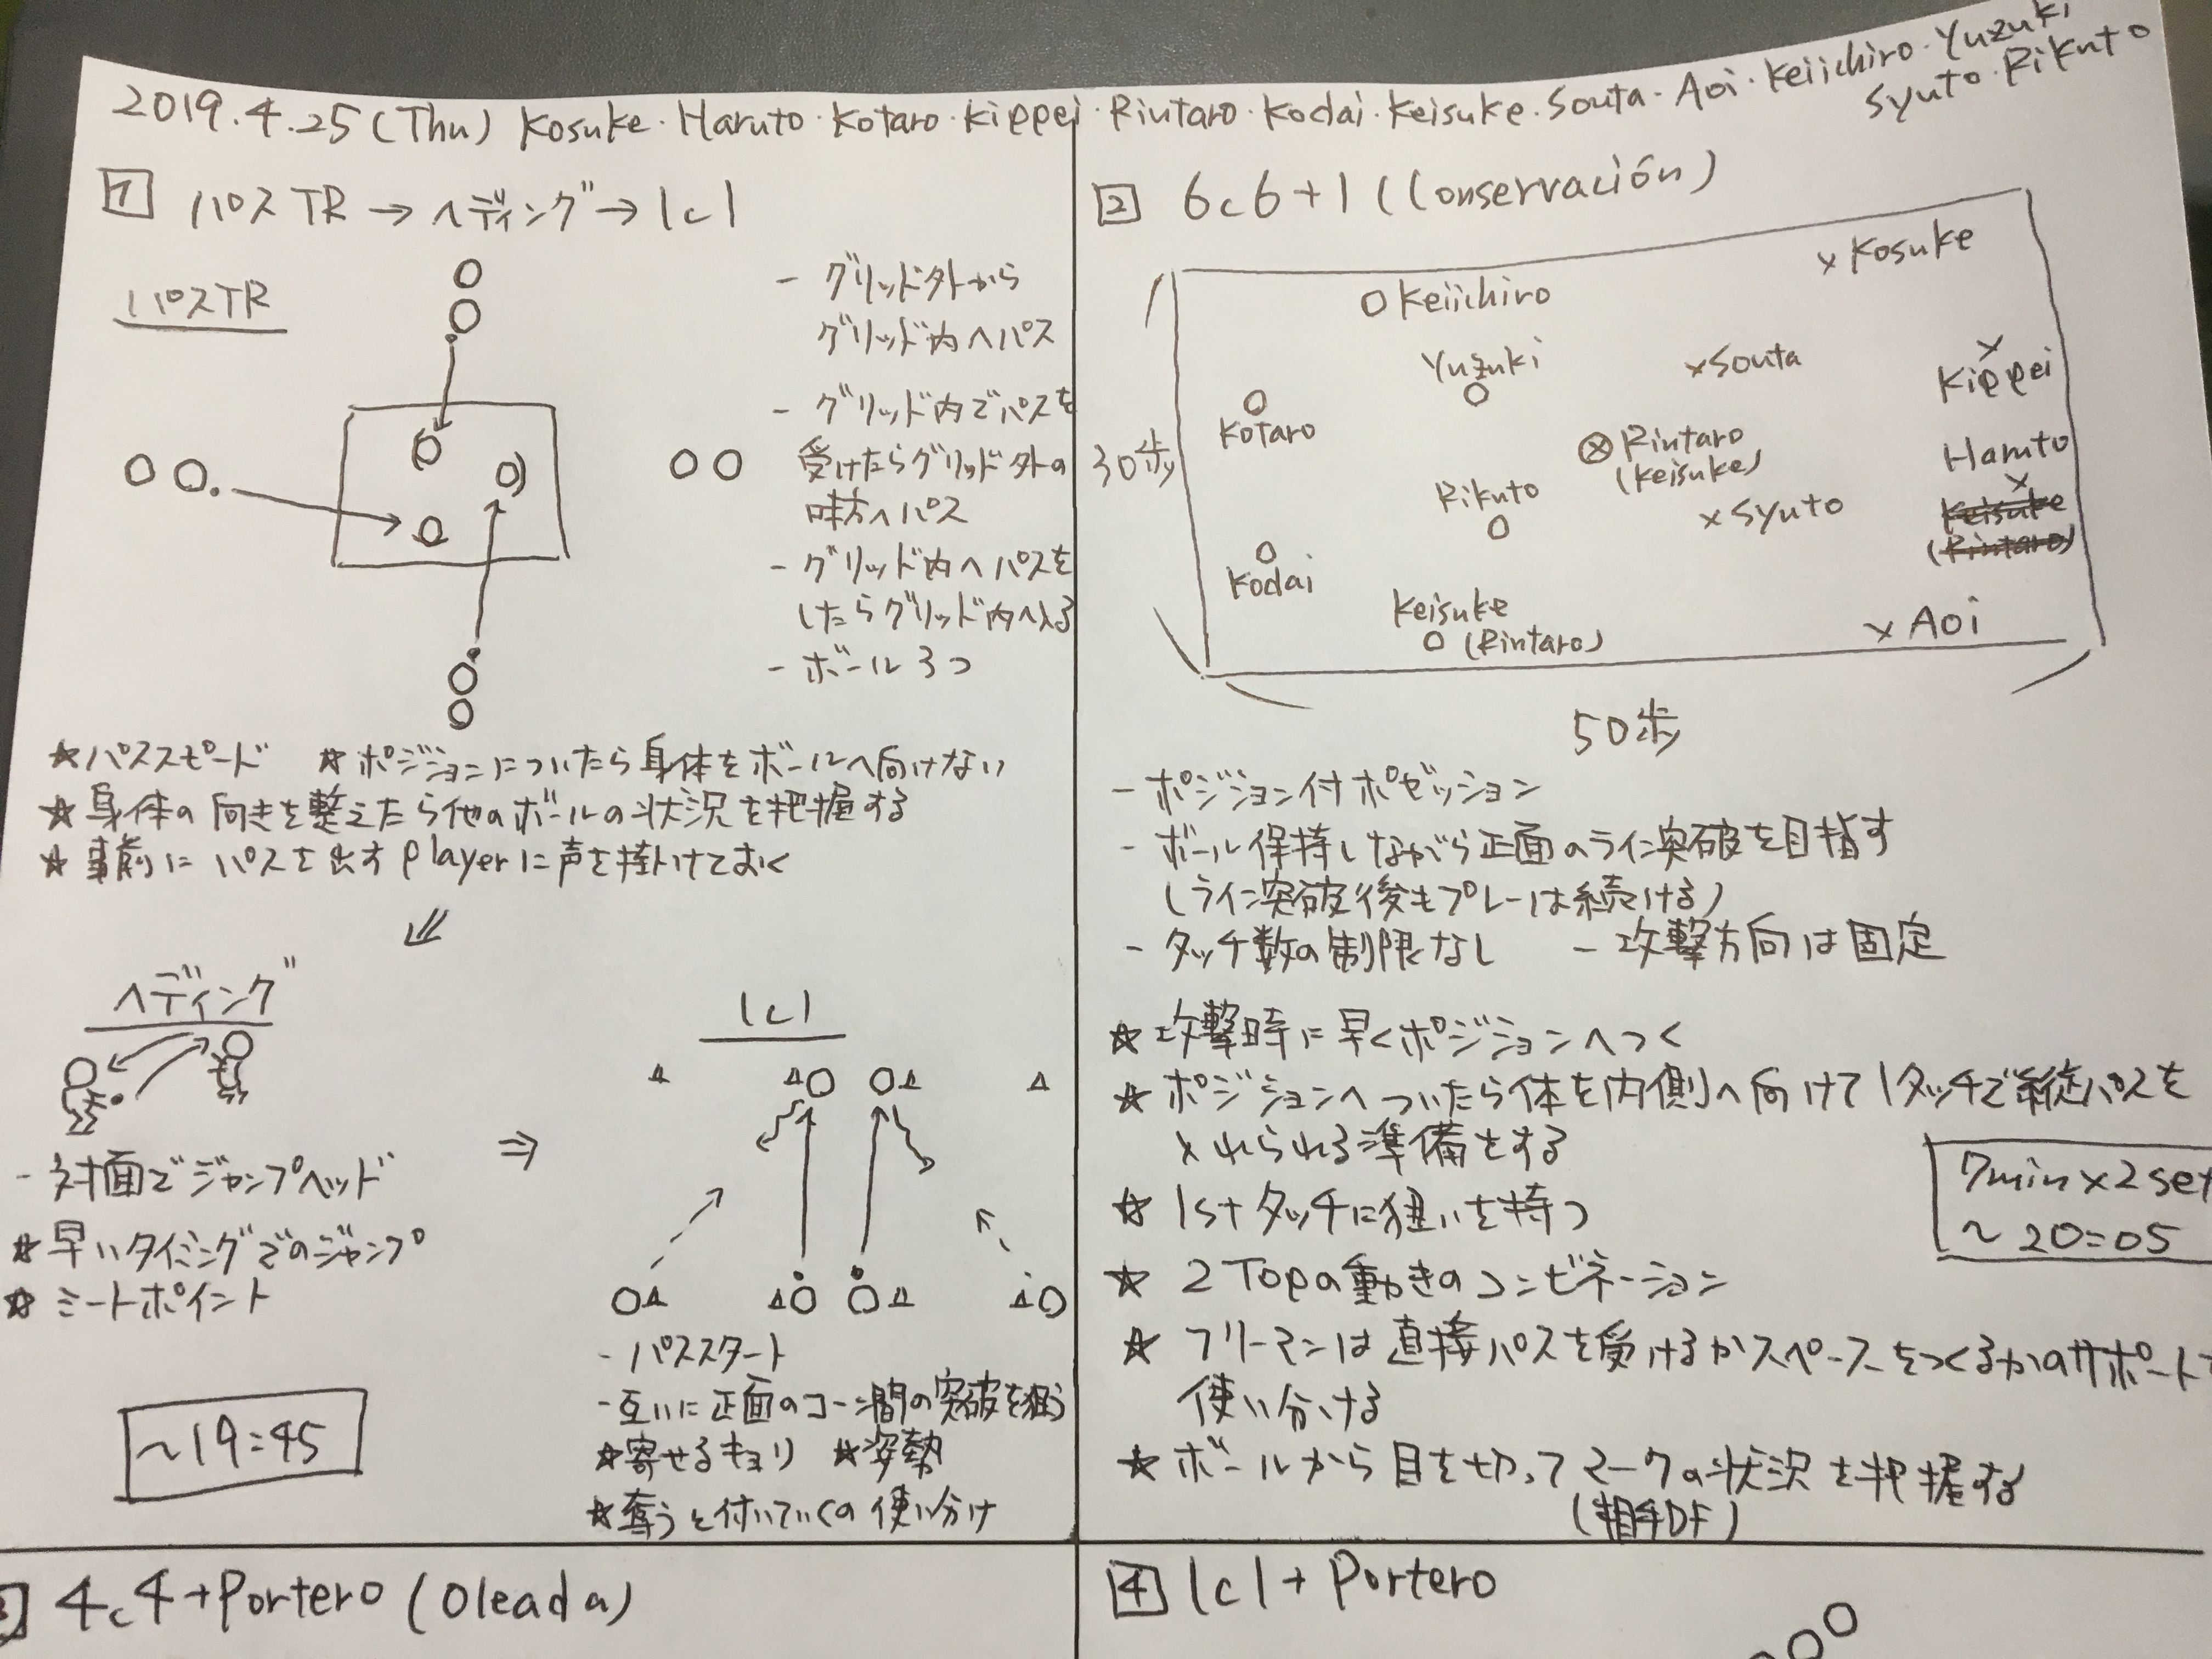 2019.4.25(Thu) Kosuke・Haruto・Kotaro・Kippei・Rintaro・Kodai・Keisuke・Souta・Aoi・Keiichiro・Yuzuki
Syuto・Rikuto
1 パスTR→ヘディング→1c1
パスTR
- グリッド外から
グリッド内へパス
- グリッド内でパスを
受けたらグリッド外の
味方へパス
- グリッド内へパスを
したらグリッド内へ入る
- ボール3つ
☆パススピード ☆ポジションについたら身体をボールへ向けない
☆身体の向きを整えたら他のボールの状況を把握する
☆事前にパスを出すplayerに声を掛けておく
ヘディング
- 対面でジャンプヘッド
☆早いタイミングでのジャンプ
☆ミートポイント
~19:45
1c1
- パススタート
- 互いに正面のコーン間の突破を狙う
☆寄せるキョリ ☆姿勢
☆奪うと付いていくの使い分け
2 6c6+1(Conservación)
×Kosuke
○Keiichiro
Yuzuki
×Souta
×
Kippei
Kotaro
⊗Rintaro
(Keisuke)
Haruto
×
Keisuke
(Rintaro)
30歩
Rikuto
×Syuto
Kodai
Keisuke
○(Rintaro)
×Aoi
50歩
- ポジション付ポゼッション
- ボール保持しながら正面のライン突破を目指す
(ライン突破後もプレーは続ける)
- タッチ数の制限なし - 攻撃方向は固定
☆攻撃時に早くポジションへつく
☆ポジションへついたら体を内側へ向けて1タッチで縦パスを
入れられる準備をする
☆1stタッチに狙いを持つ
☆2Topの動きのコンビネーション
☆フリーマンは直接パスを受けるかスペースをつくるかのサポートで
使い分ける
☆ボールから目を切ってマークの状況を把握する
(相手DF)
7min×2set
~20:05
4c4+Portero(Oleada)
4 1c1+Portero